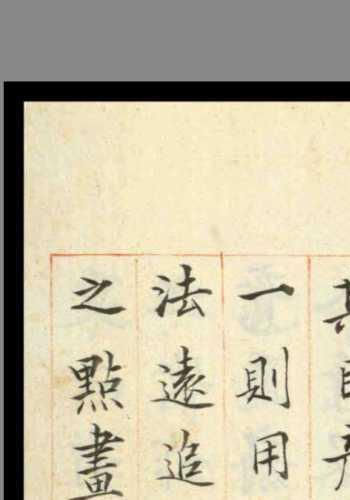 一則用
法遠追
之點畫